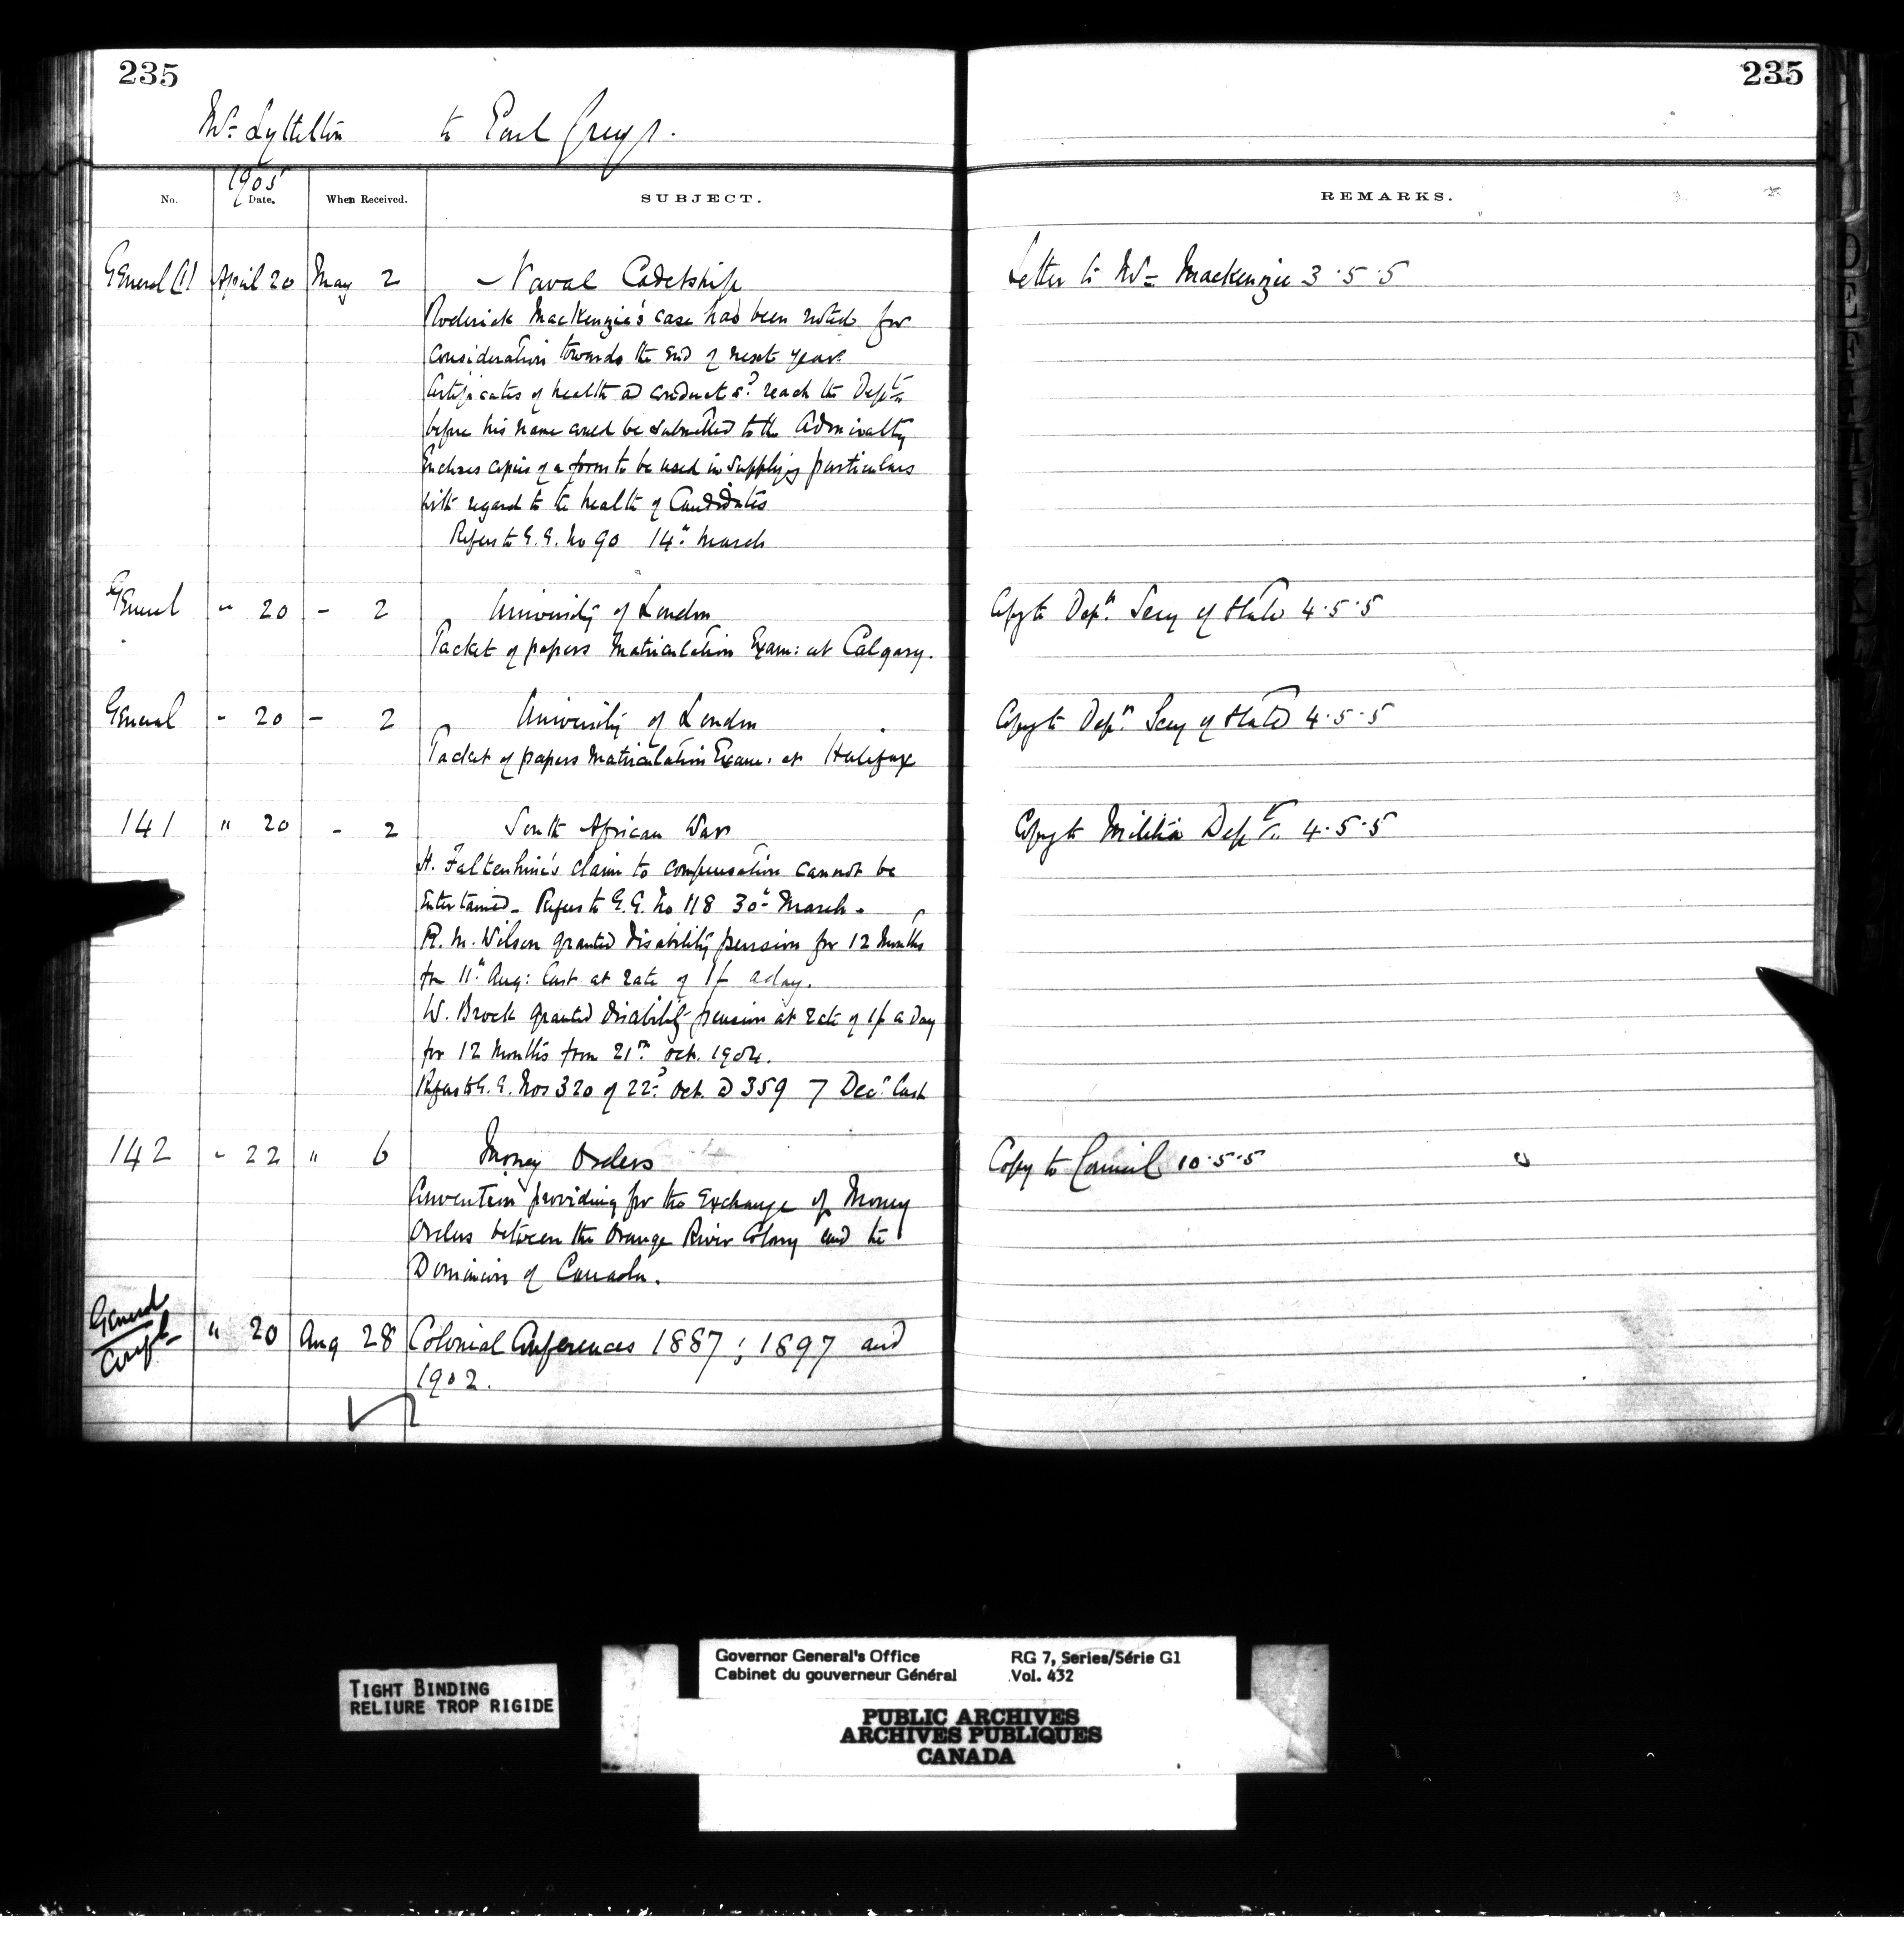 235
235
Mr. Lyttelton to Earl Grey.
No.
1905
Date.
When Received.
SUBJECT.
REMARKS.
General (1) April 20 May 2 Naval Cadetship Letter to Mr. Mackenzie 3.5.5
Roderick MacKenzie's case had been noted for
consideration towards the end of next year
Certificates of health & conduct sd. reach the Dept.
before his name could be submitted to the Admiralty
Encloses copies of a form to be used in supplying particulars
with regard to the health of Candidates
Refers to G.G. No 90 14th March
General " 20 - 2 University of London Copy to Dept. Secy of State 4.5.5
Packet of papers Matriculation Exam: at Calgary.
General - 20 - 2 University of London Copy to Dept. Secy of State 4.5.5
Packet of papers Matriculation Exam: at Halifax
141 " 20 - 2 South African War Copy to Militia Dept. 4.5.5
H. claim to compensation cannot be
entertained - Refers to G.G. No 118 30th March.
R. M. Wilson granted disability pension for 12 Months
fm 11th Aug: last at rate of 1/- a day.
W. Brock granted disability pension at rate of 1/- a day
for 12 Months from 21st Oct. 1904.
Refers to G.G. Nos 320 of 22d Oct. & 359 7 Decr. last
142 " 22 " 6 Money Orders Copy to Council 10.5.5
Convention providing for the Exchange of Money
Orders between the Orange River Colony and the
Dominion of Canada.
General
Confl " 20 Aug 28 Colonial Conferences 1887; 1897 and
1902.
Governor General's Office RG 7, Series/Série G1
Cabinet du gouverneur Général Vol. 432
TIGHT BINDING
RELIURE TROP RIGIDE
PUBLIC ARCHIVES
ARCHIVES PUBLIQUES
CANADA